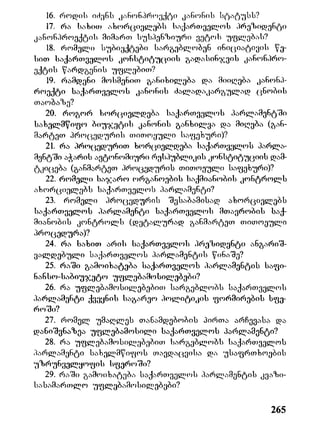 16. როდის იძენს კანონპროექტი კანონის სტატუსს?
17. რა სახით ახორციელებს საქართველოს პრეზიდენტი
კანონპროექტის მიმართ სუსპენზიური ვეტოს უფლებას?
18. რომელი სუბიექტები სარგებლობენ ინიციატივის წე-
სით საქართველოს კონსტიტუციის გადასინჯვის კანონპრო-
ექტის წარდგენის უფლებით?
19. რამდენი მოსმენით განიხილება და მიიღება კანონპ-
როექტი საქართველოს კანონის ძალადაკარგულად ცნობის
თაობაზე?
20. როგორ ხორციელდება საქართველოს პარლამენტში
სახელმწიფო ბიუჯეტის კანონის განხილვა და მიღება (გან-
მარტეთ პროცედურის თითოეული საფეხური)?
21. რა პროცედურით ხორციელდება საქართველოს პარლა-
მენტში აჭარის ავტონომიური რესპუბლიკის კონსტიტუციის დამ-
ტკიცება (განმარტეთ პროცედურის თითოეული საფეხური)?
22. რომელი საჯარო ორგანოების საქმიანობის კონტროლს
ახორციელებს საქართველოს პარლამენტი?
23. რომელი პროცედურის შესაბამისად ახორციელებს
საქართველოს პარლამენტი საქართველოს მთავრობის საქ-
მიანობის კონტროლს (დეტალურად განმარტეთ თითოეული
პროცედურა)?
24. რა სახით არის საქართველოს პრეზიდენტი ანგარიშ-
ვალდებული საქართველოს პარლამენტის წინაშე?
25. რაში გამოიხატება საქართველოს პარლამენტის საფი-
ნანსო-საბიუჯეტო უფლებამოსილებები?
26. რა უფლებამოსილებებით სარგებლობს საქართველოს
პარლამენტი ქვეყნის საგარეო პოლიტიკის ფორმირების სფე-
როში?
27. რომელ უმაღლეს თანამდებობის პირთა არჩევასა და
დანიშვნაზეა უფლებამოსილი საქართველოს პარლამენტი?
28. რა უფლებამოსილებებით სარგებლობს საქართველოს
პარლამენტი სახელმწიფოს თავდაცვისა და უსაფრთხოების
უზრუნველყოფის სფეროში?
29. რაში გამოიხატება საქართველოს პარლამენტის კვაზი-
სასამართლო უფლებამოსილებები?
265